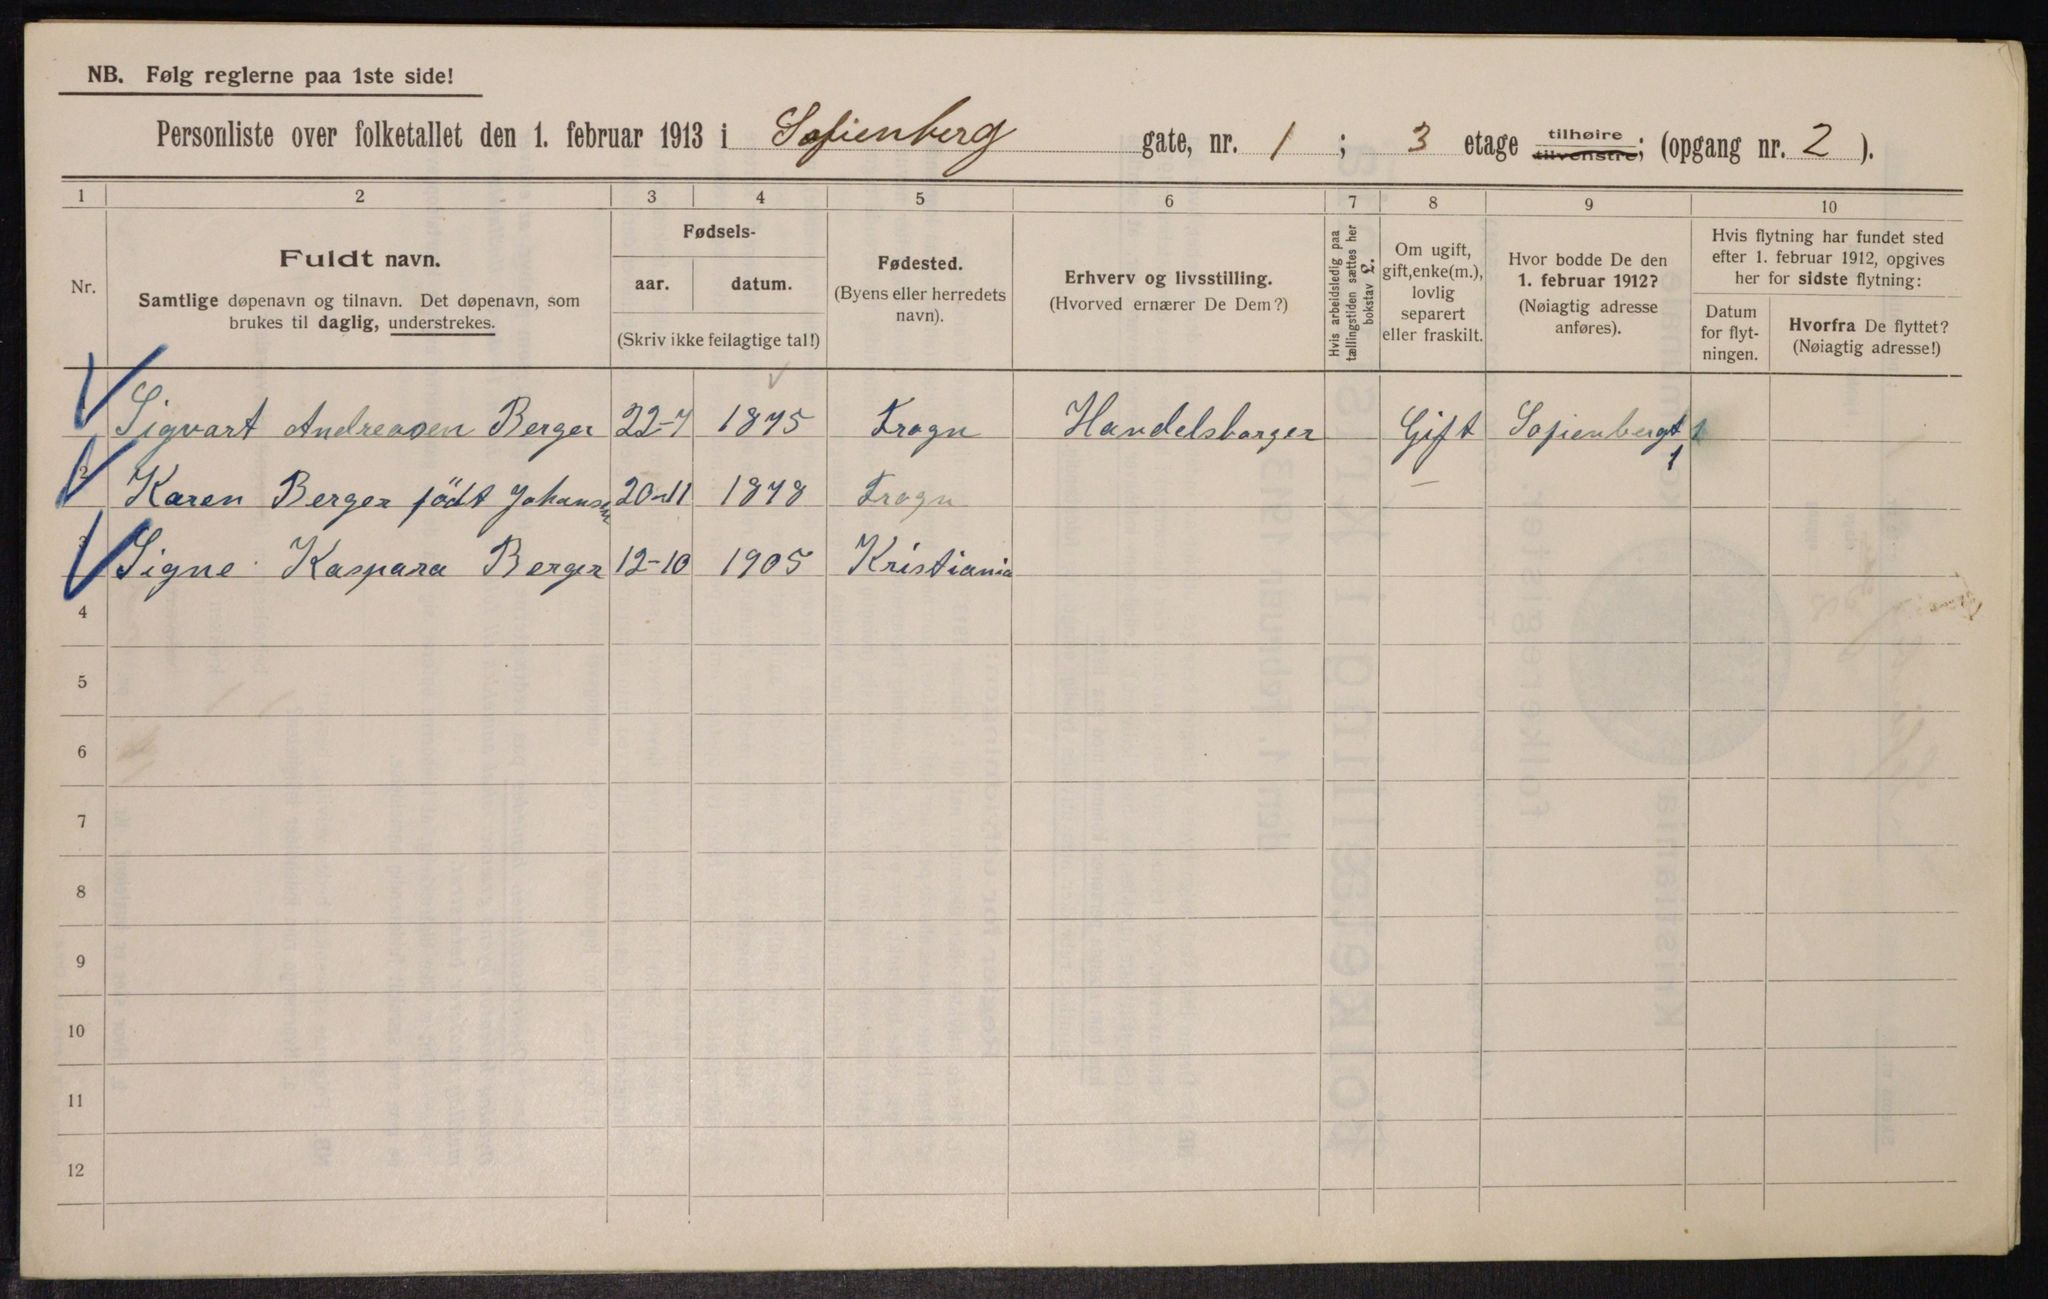 NB. Følg reglerne paa 1ste side!
Personliste over folketallet den 1. februar 1913 i Sofienberg gate, nr. 1; 3 etage tilhøire tilvenstre; (opgang nr. 2).
1 2 3 4 5 6 7 8 9 10
Nr.
Fuldt navn.
Samtlige døpenavn og tilnavn. Det døpenavn, som
brukes til daglig, understrekes.
Fødsels-
aar. datum.
(Skriv ikke feilagtige tal!)
Fødested.
(Byens eller herredets
navn).
Erhverv og livsstilling.
(Hvorved ernærer De Dem?)
Hvis arbeidsledig paa
tællingstiden sættes her
bokstav L.
Om ugift,
gift, enke(m.),
lovlig
separert
eller fraskilt.
Hvor bodde De den
1. februar 1912?
(Nøiagtig adresse
anføres).
Hvis flytning har fundet sted
efter 1. februar 1912, opgives
her for sidste flytning:
Datum
for flyt-
ningen.
Hvorfra De flyttet?
(Nøiagtig adresse!)
Sigvart Andreasen Berger 22-7 1875 Frogn Handelsborger Gift Sofienbergt 1
1
2 Karen Berger födt Johansen 20-11 1878 Frogn –
3 Signe Kaspara Berger 12-10 1905 Kristiania
4
5
6
7
8
9
10
11
12